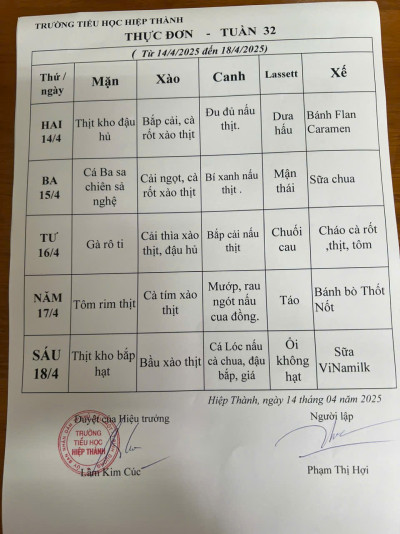 TRƯỜNG TIỂU HỌC HIỆP THÀNH
THỰC ĐƠN - TUẦN 32
( Từ 14/4/2025 đến 18/4/2025)
Thứ / ngày Mặn Xào Canh Lassett Xế
HAI 14/4 Thịt kho đậu hủ Bắp cải, cà rốt xào thịt Đu đủ nấu thịt. Dưa hấu Bánh Flan Caramen
BA 15/4 Cá Ba sa chiên sả nghệ Cải ngọt, cà rốt xào thịt Bí xanh nấu thịt . Mận thái Sữa chua
TƯ 16/4 Gà rô ti Cải thìa xào thịt, đậu hủ Bắp cải nấu thịt Chuối cau Cháo cà rốt ,thịt, tôm
NĂM 17/4 Tôm rim thịt Cà tím xào thịt Mướp, rau ngót nấu cua đồng. Táo Bánh bò Thốt Nốt
SÁU 18/4 Thịt kho bắp hạt Bầu xào thịt Cá Lóc nấu cà chua, đậu bắp, giá Ổi không hạt Sữa ViNamilk
Hiệp Thành, ngày 14 tháng 04 năm 2025
Duyệt của Hiệu trưởng Người lập
TRƯỜNG
TIỂU HỌC
HIỆP THÀNH
Lâm Kim Cúc Phạm Thị Hợi